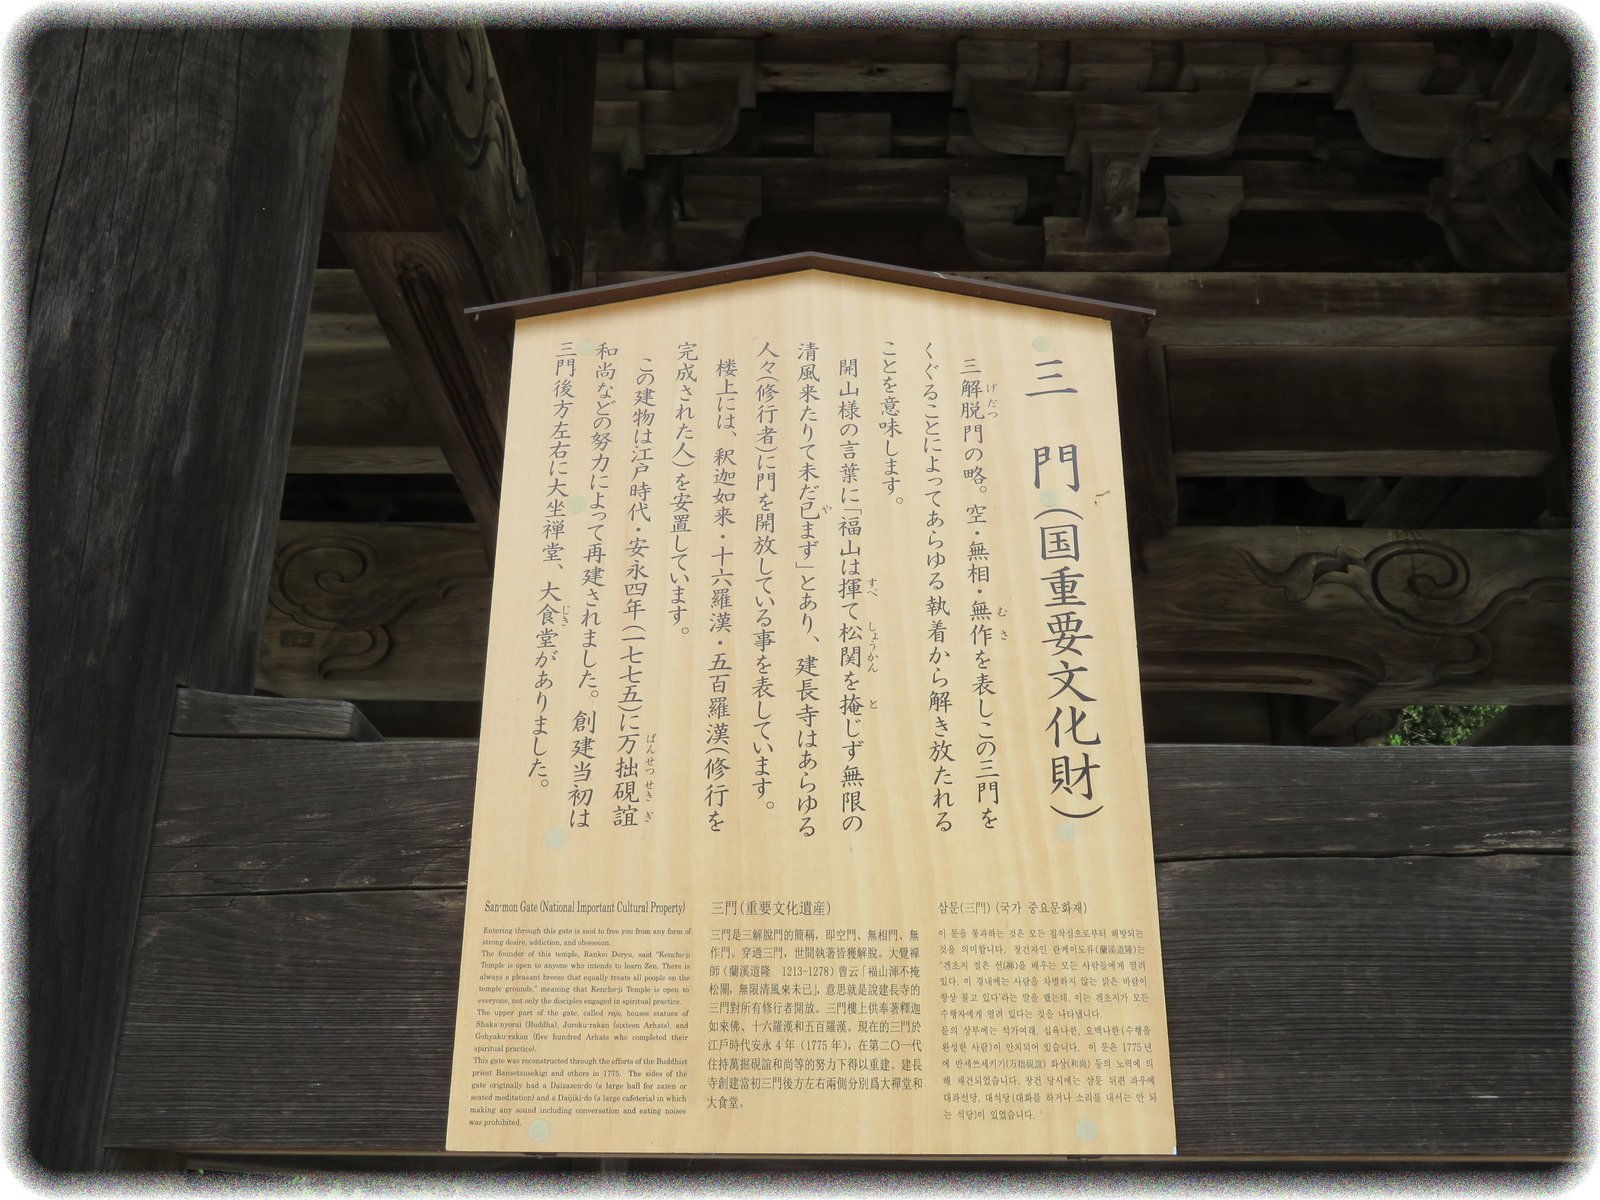 三 門(国重要文化財)
三解脱門の略。空・無相・無作を表しこの三門を
げだつ
むさ
くぐることによってあらゆる執着から解き放たれる
ことを意味します。
開山様の言葉に「福山は揮て松関を掩じず無限の
すべ
しょうかん
と
清風来たりて未だ已まず」とあり、建長寺はあらゆる
や
人々(修行者)に門を開放している事を表しています。
楼上には、釈迦如来・十六羅漢・五百羅漢(修行を
完成された人)を安置しています。
この建物は江戸時代・安永四年(一七七五)に万拙硯誼
ばんせつせきぎ
和尚などの努力によって再建されました。創建当初は
三門後方左右に大坐禅堂、大食堂がありました。
じき
San-mon Gate (National Important Cultural Property)
Entering through this gate is said to free you from any form of
strong desire, addiction, and obsession.
The founder of this temple, Rankei Doryu, said "Kencho-ji
Temple is open to anyone who intends to learn Zen. There is
always a pleasant breeze that equally treats all people on the
temple grounds," meaning that Kencho-ji Temple is open to
everyone, not only the disciples engaged in spiritual practice.
The upper part of the gate, called rojo, houses statues of
Shaka-nyorai (Buddha), Juroku-rakan (sixteen Arhats), and
Gohyaku-rakan (five hundred Arhats who completed their
spiritual practice).
This gate was reconstructed through the efforts of the Buddhist
priest Bansetsusekigi and others in 1775. The sides of the
gate originally had a Daizazen-do (a large hall for zazen or
seated meditation) and a Daijiki-do (a large cafeteria) in which
making any sound including conversation and eating noises
was prohibited.
三門(重要文化遺産)
三門是三解脫門的簡稱，即空門、無相門、無
作門。穿過三門，世間執著皆獲解脫。大覺禪
師（蘭溪道隆 1213-1278）曾云「福山渾不掩
松關，無限清風來未已」，意思就是說建長寺的
三門對所有修行者開放。三門樓上供奉著釋迦
如來佛、十六羅漢和五百羅漢。現在的三門於
江戶時代安永 4 年（1775 年），在第二〇一代
住持萬拙硯誼和尚等的努力下得以重建。建長
寺創建當初三門後方左右兩側分別爲大禪堂和
大食堂。
삼문(三門) (국가 중요문화재)
이 문을 통과하는 것은 모든 집착심으로부터 해방되는
것을 의미합니다. 창건자인 란케이도류(蘭溪道隆)는
'겐초지 절은 선(禅)을 배우는 모든 사람들에게 열려
있다. 이 경내에는 사람을 차별하지 않는 맑은 바람이
항상 불고 있다'라는 말을 했는데, 이는 겐초지가 모든
수행자에게 열려 있다는 것을 나타냅니다.
문의 상부에는 석가여래, 십육나한, 오백나한(수행을
완성한 사람)이 안치되어 있습니다. 이 문은 1775년
에 반세쓰세키기(万拙硯誼) 화상(和尚) 등의 노력에 의
해 재건되었습니다. 창건 당시에는 삼문 뒤편 좌우에
대좌선당, 대식당(대화를 하거나 소리를 내서는 안 되
는 식당)이 있었습니다.